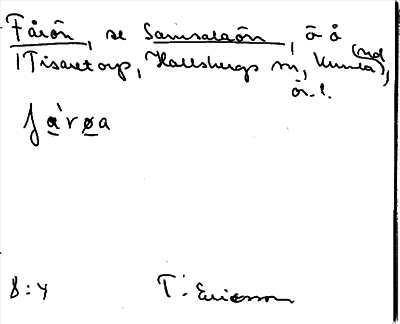 Fåraön, se Samsalaön, ö å
Tisaretorp, Hallsbergs sn, Kumla hd,
ör-l.
fa̲`rø̲a
8:4 T. Ericsson